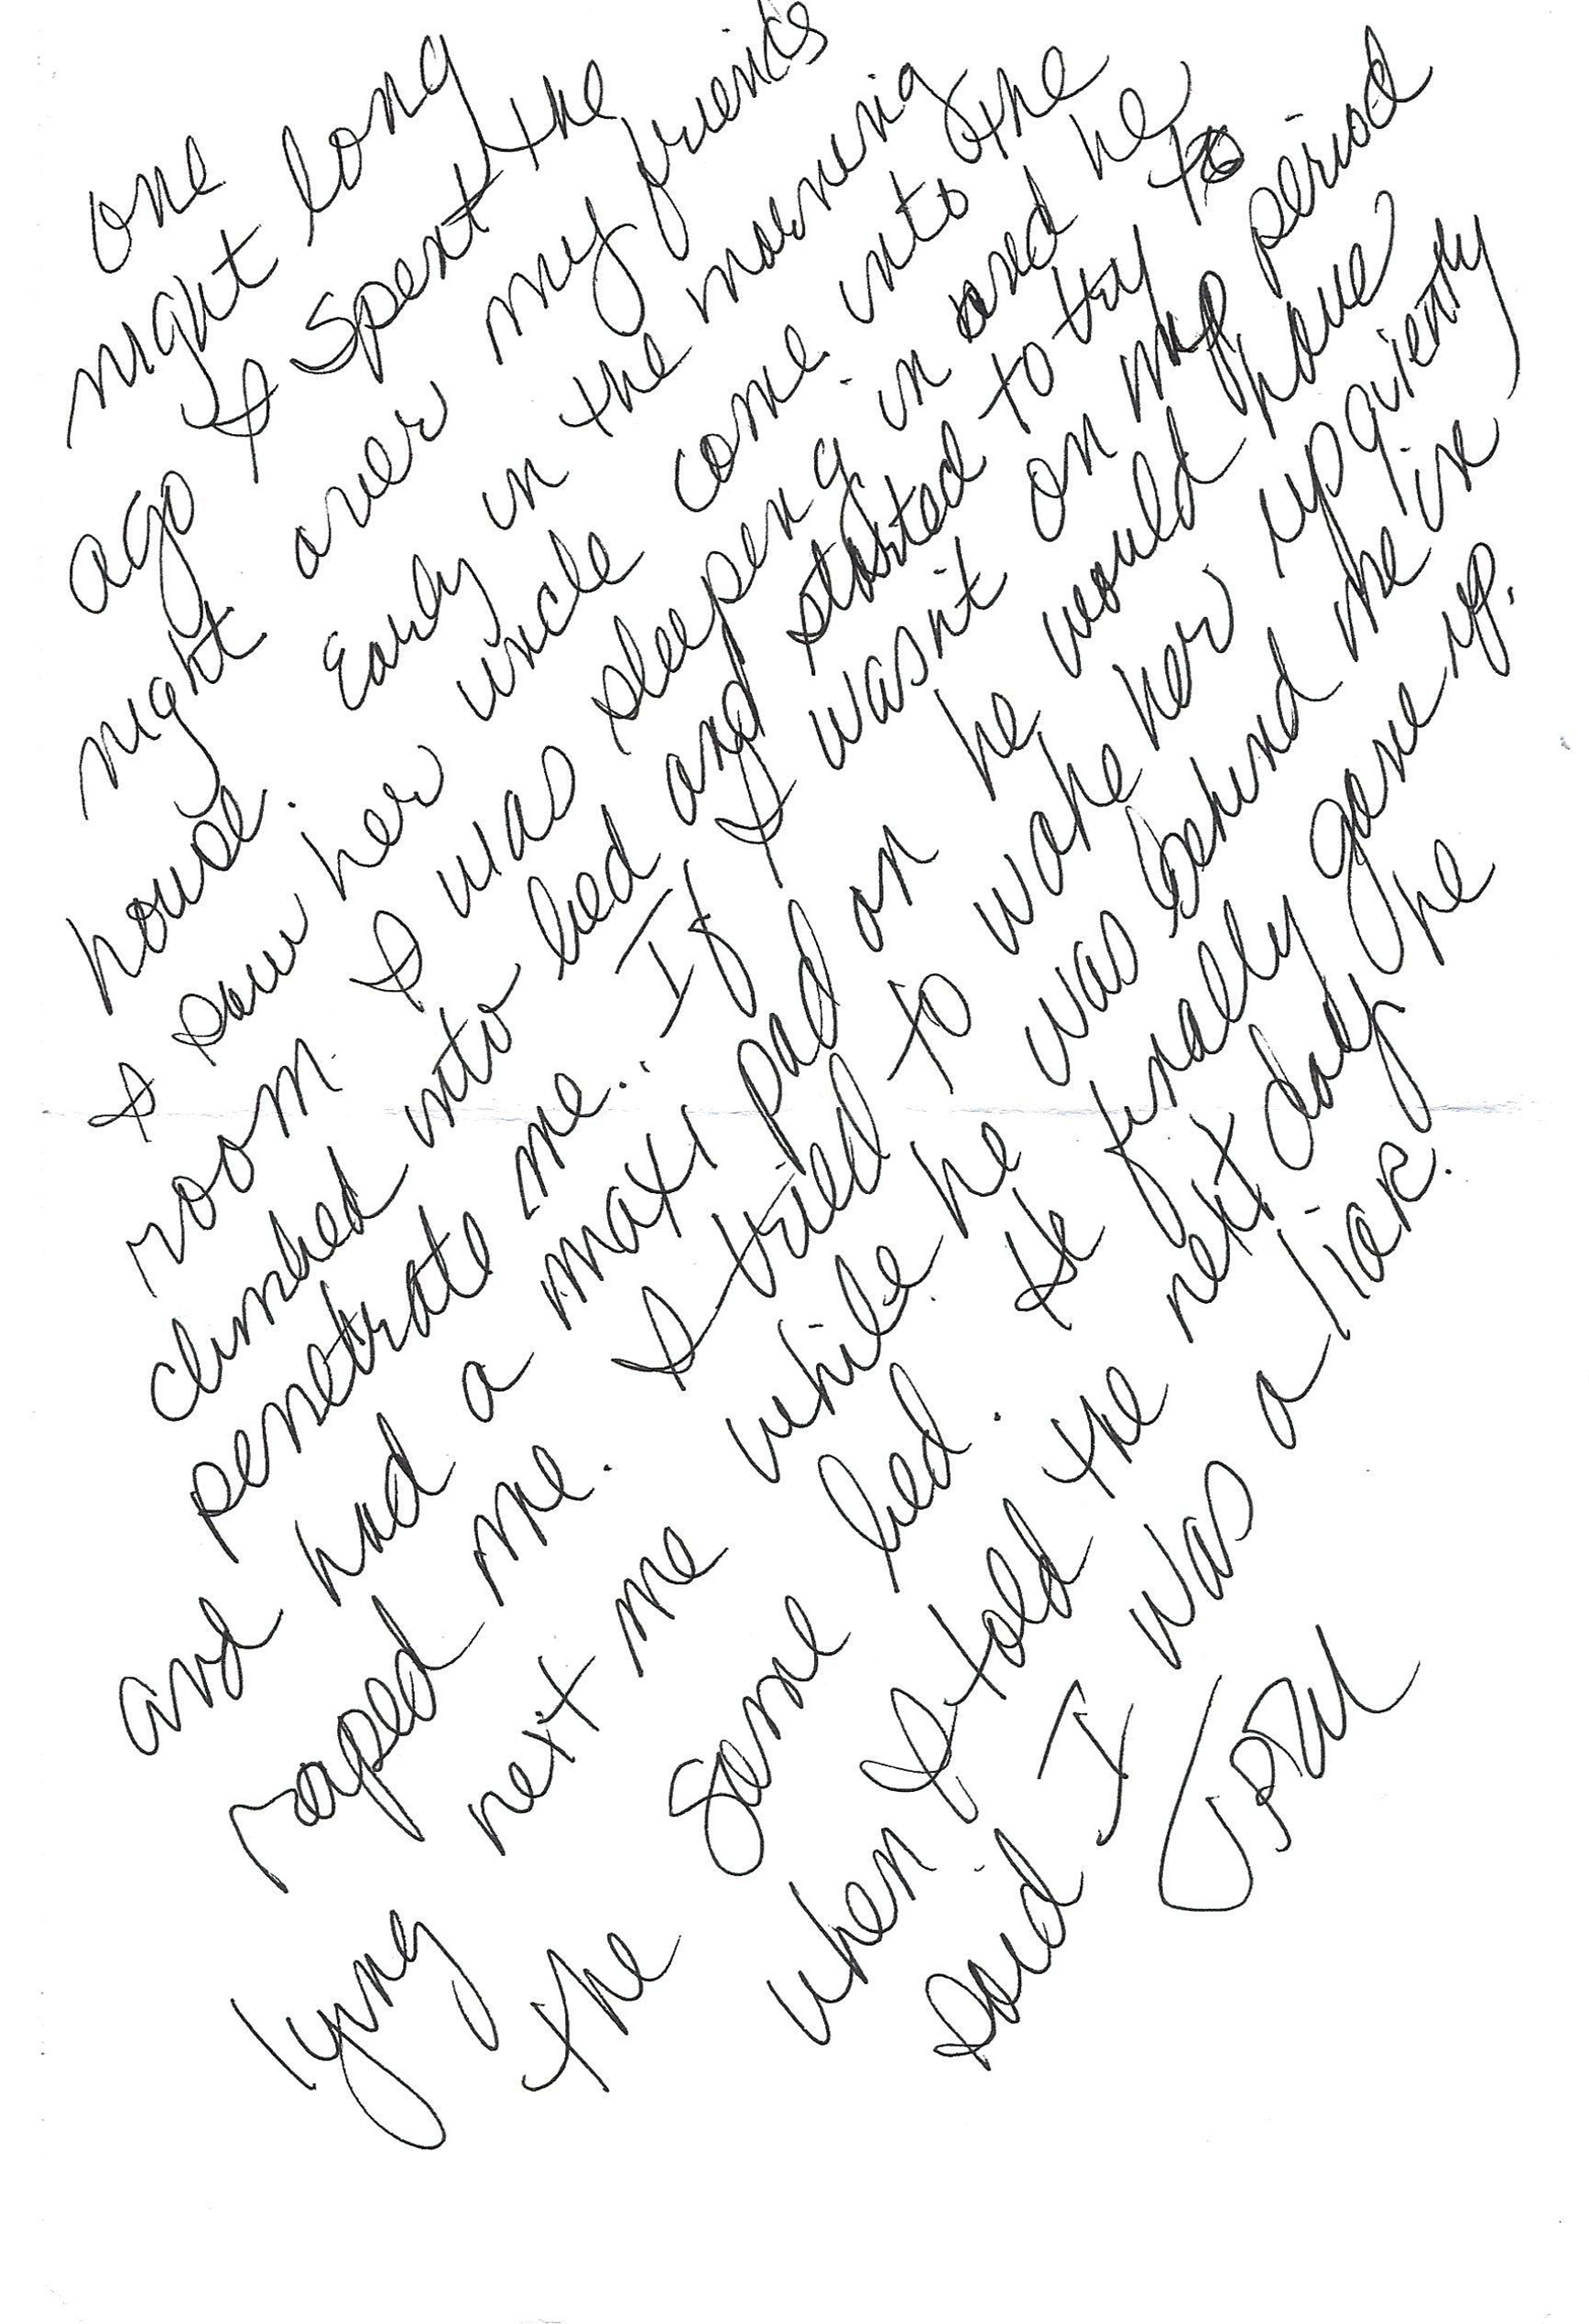 one
night long
ago I spent the
night over my friends
house. Early in the morning
I saw her uncle come into the
room I was sleeping in and he
climbed into bed and started to try to
penetrate me.. If I wasn't on my period
and had a maxi pad on he would have
raped me. I tried to wake her up quietly
lying next me while he was behind me in
the same bed. He finally gave up.
when I told the next day he
said I was a liar.